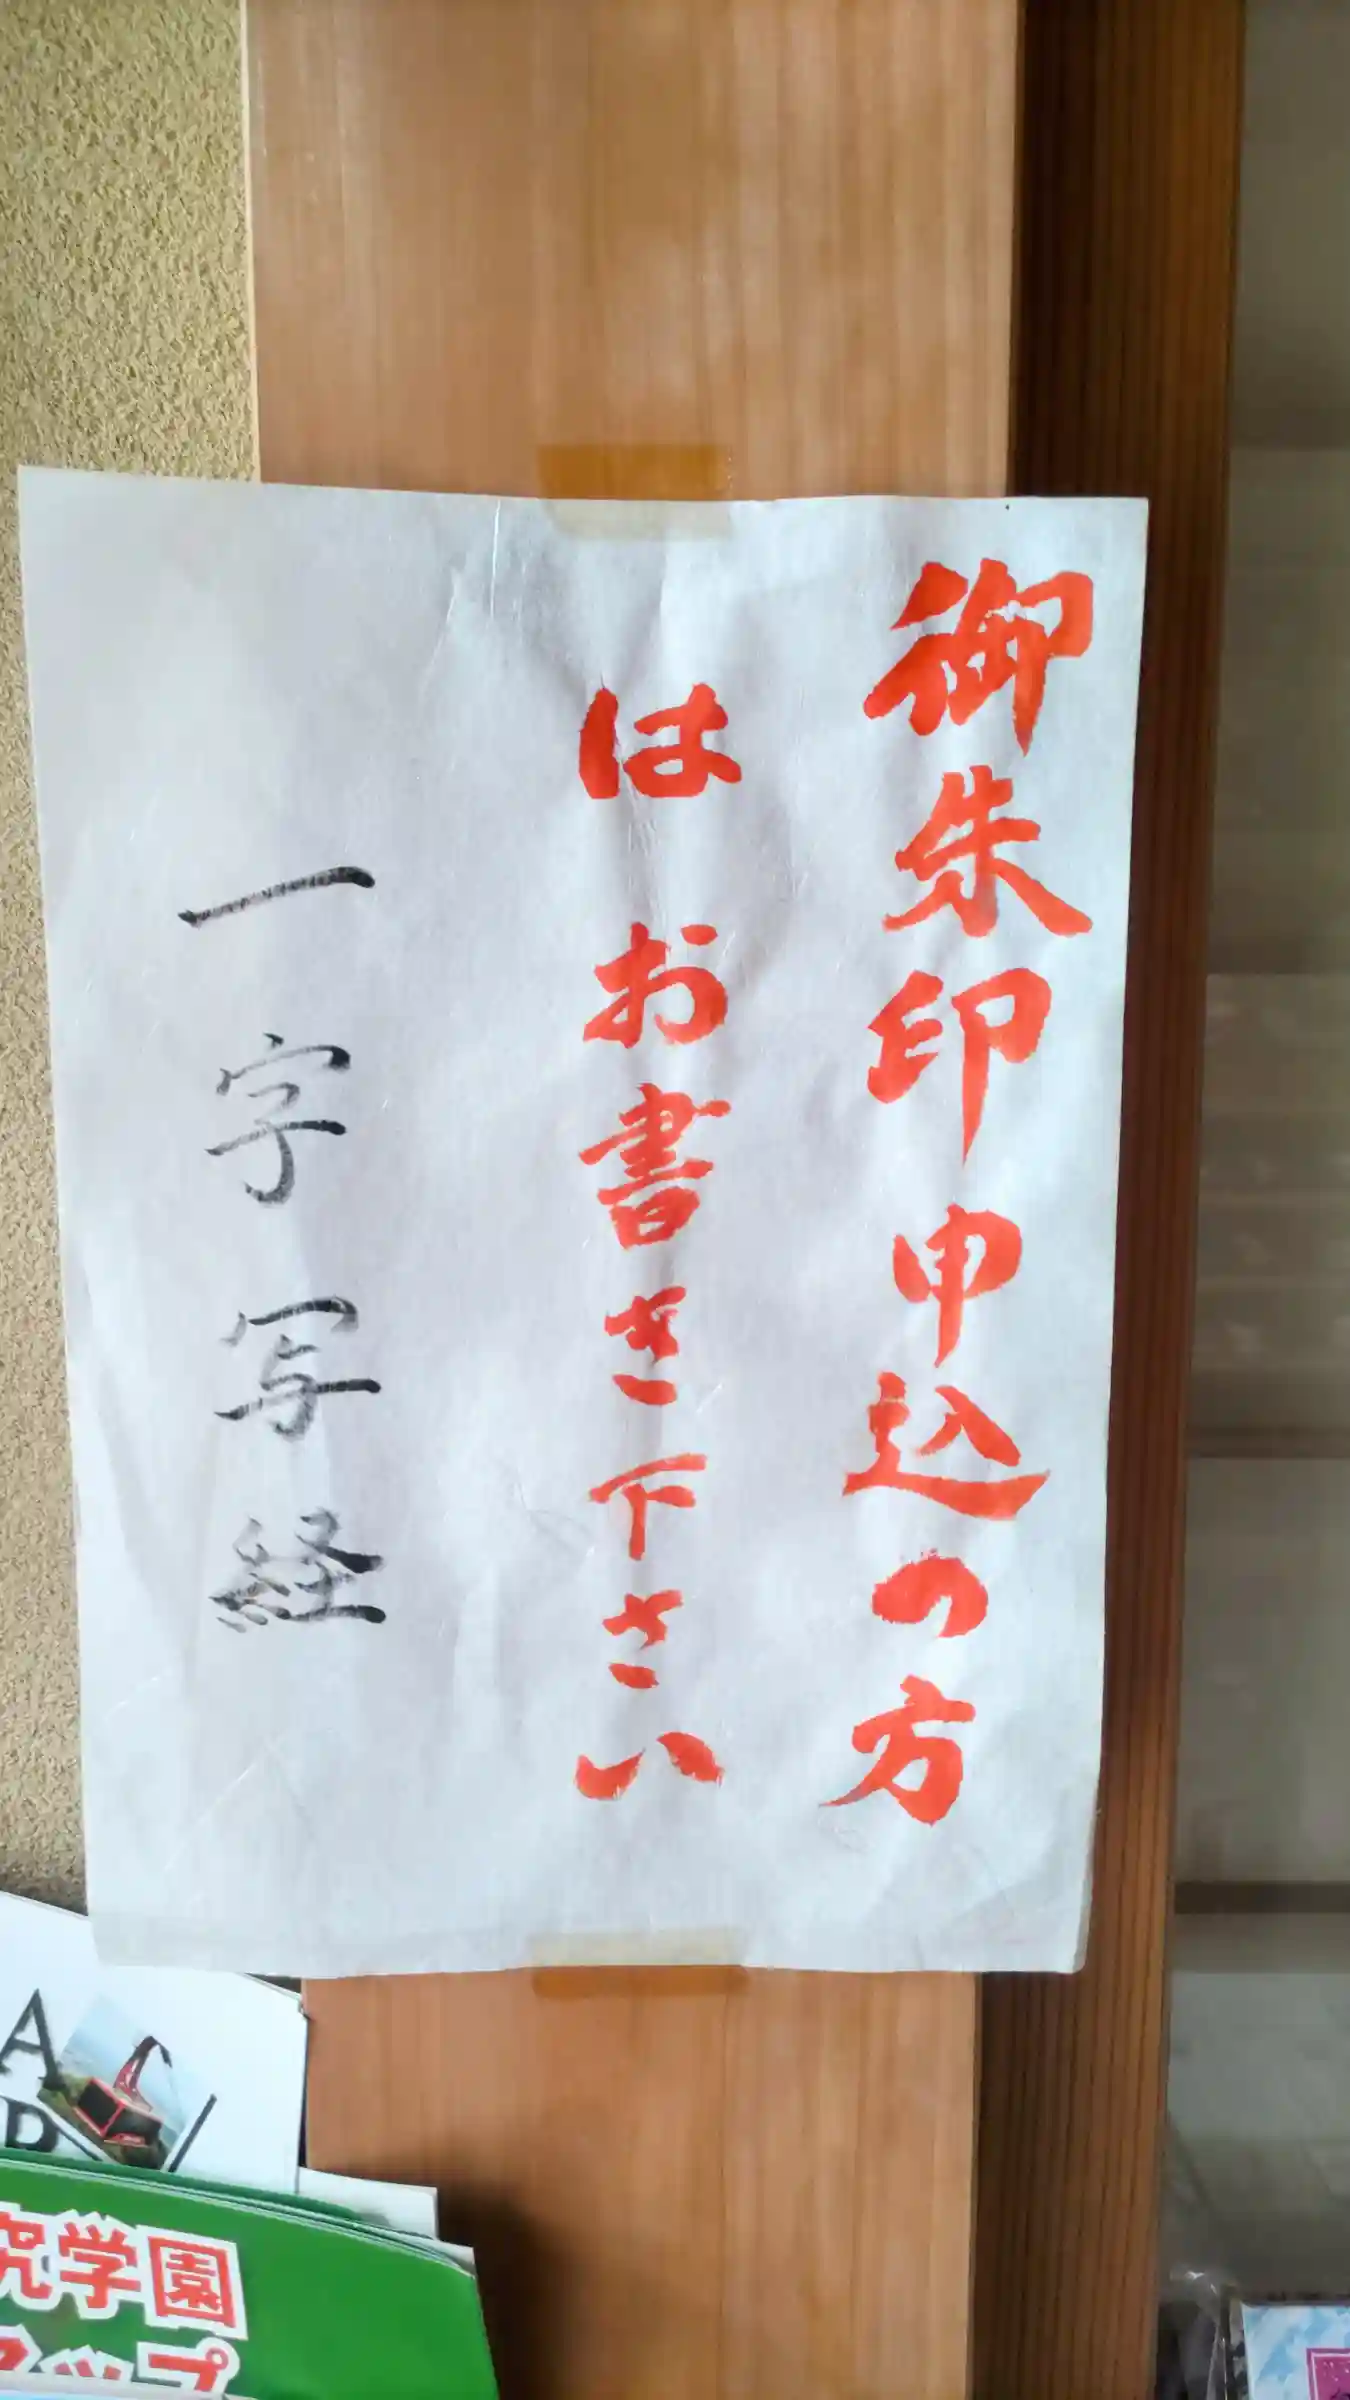 御朱印申込の方
はお書き下さい
一字写経
A
究学園
マップ